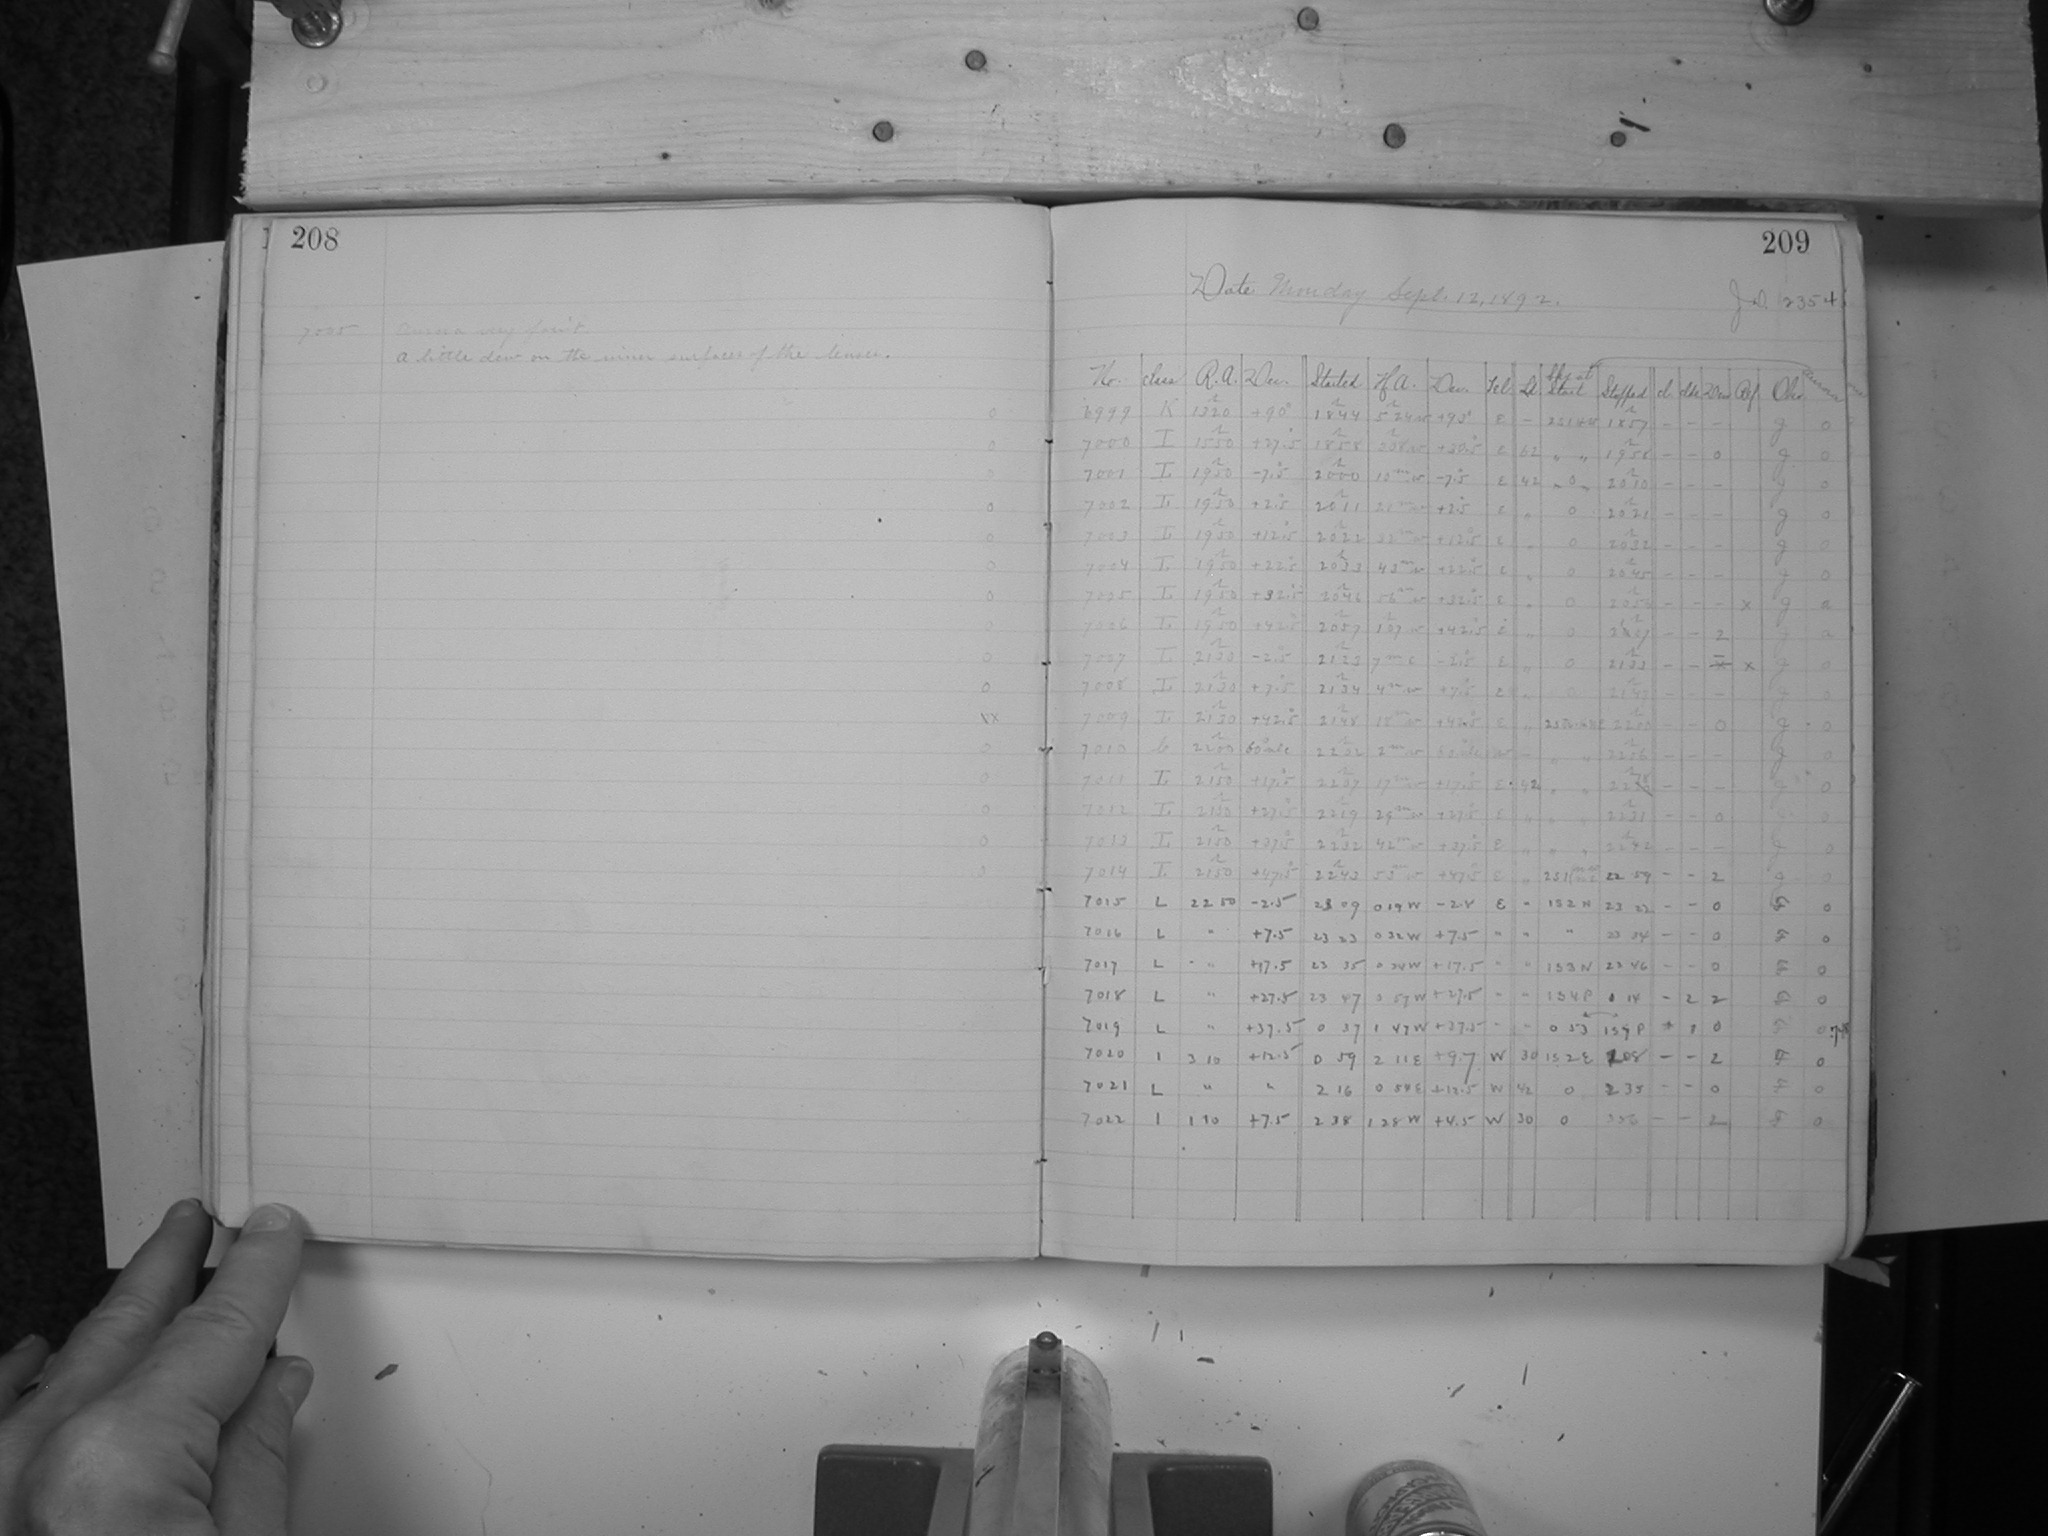 208
7005 Aurora very faint
A little dew on the inner surfaces of the lenses.
209
Date Monday Sept. 12, 1892.
J.D. 12354
No. class R.A. Dec. Started H.A. Dec. Tel. Sky at Start Stopped cl. Dew Ref Obs Aurora
6999 K 1320 +90° 1844 5 24 w +93° E - 1857 - - - g 0
7000 I 1550 +27.5 1858 +30.5 E 62 " " 1958 - - 0 g 0
7001 L 1950 -7.5 2000 10m w -7.5 E 42 " 0 " 2010 - - - g 0
7002 L 1950 +2.5 2011 21m w +2.5 E " 0 2021 - - - g 0
7003 L 1950 +12.5 2022 32m w +12.5 E " 0 2032 - - - g 0
7004 L 1950 +22.5 2033 43m w +22.5 E " 0 2045 - - - g 0
7005 L 1950 +32.5 2046 56m w +32.5 E " 0 - - - x g a
7006 L 1950 +42.5 2057 107 w +42.5 E " 0 2107 - - 2 g a
7007 L 2130 -2.5 2123 7m E -2.5 E " 0 2133 - - x g 0
7008 L 2130 +7.5 2134 4m w +7.5 E " 0 - - - g 0
xx 7009 L 2130 +42.5 2148 18m w +42.5 E " 2200 - - 0 g 0
7010 C 2200 2202 2m w w - " " 2206 - - - g 0
7011 L 2150 +17.5 2207 17m w +17.5 E 42 " " - - - g 0
7012 L 2150 +27.5 2219 29m w +27.5 E " " " 2231 - - 0 0
7013 L 2150 +37.5 2232 42m w +37.5 E " " " 2242 - - - g 0
7014 L 2150 +47.5 2243 53m w +47.5 E " 22 59 - - 2 g 0
7015 L 22 50 -2.5 23 09 0 19 W -2.8 E " 152 N 23 22 - - 0 F 0
7016 L " +7.5 23 23 0 32 W +7.5 " " " 23 34 - - 0 F 0
7017 L " +17.5 23 35 0 W +17.5 " " 153 N 23 46 - - 0 F 0
7018 L " +27.5 23 47 0 57 W +27.5 " " 154 P 0 14 - 2 2 F 0
7019 L " +37.5 0 37 1 47 W +37.5 " " 0 53 154 P + 1 0 F 0
7020 I 3 10 +12.5 0 59 2 11 E +9.7 W 30 152 E 2 08 - - 2 F 0
7021 L " " 2 16 0 54 E +12.5 W 42 0 2 35 - - 0 F 0
7022 I 1 10 +7.5 2 38 1 28 W +4.5 W 30 0 - - 2 F 0